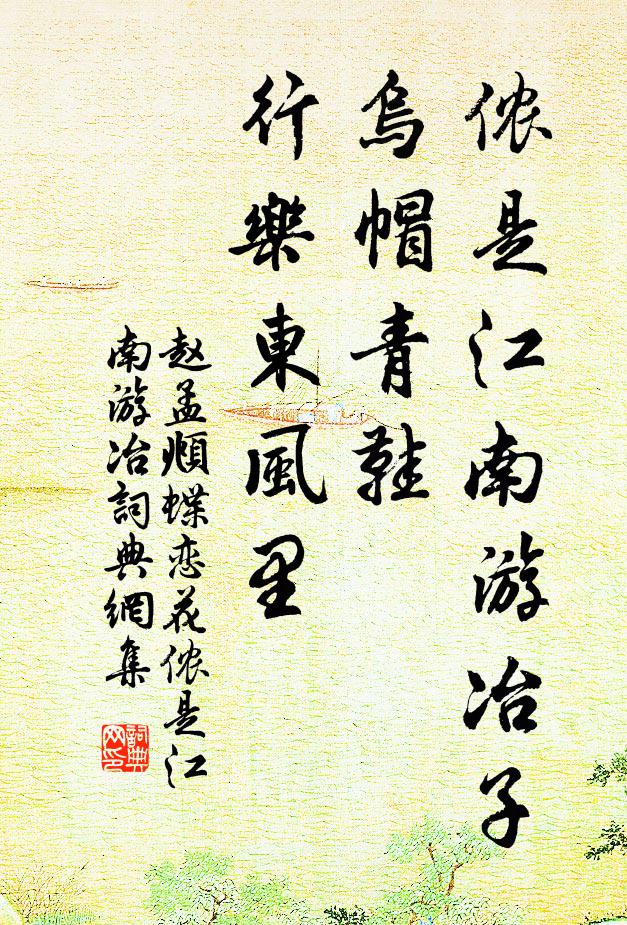 侬是江南游冶子
烏帽青鞋
行樂東風里
赵孟頫蝶恋花侬是江
南游冶詞典網集
詞典网印